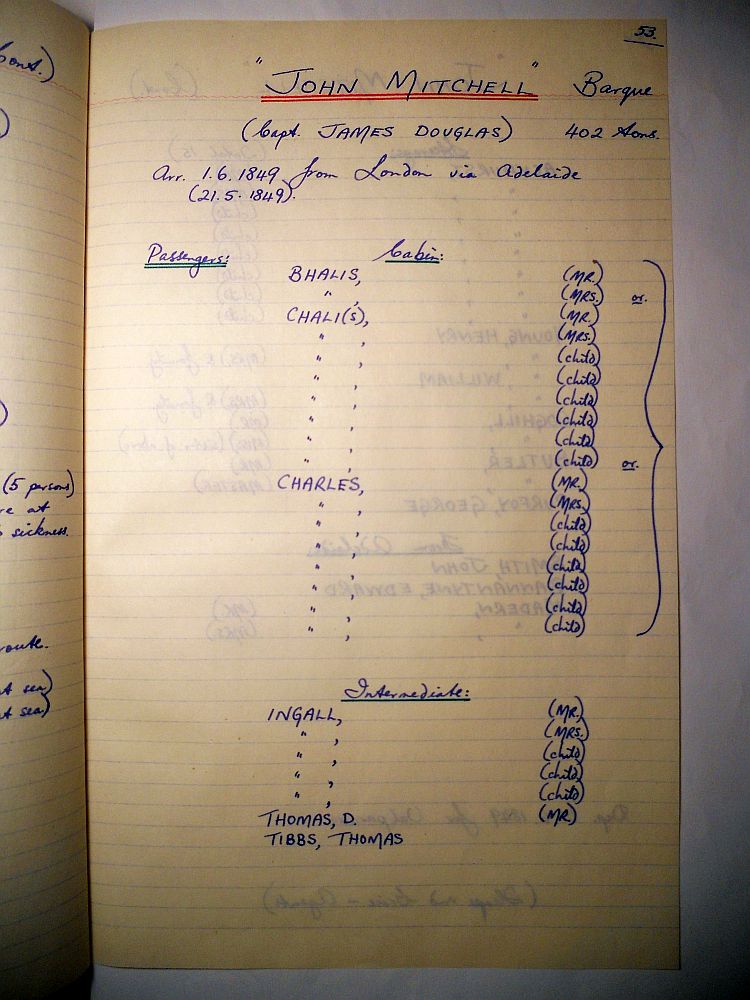 53.
"JOHN MITCHELL" Barque
(Capt. JAMES DOUGLAS) 402 tons.
Arr. 1.6.1849 from London via Adelaide
(21.5.1849).
Passengers: Cabin:
BHALIS, (MR.)
" , (MRS.) or.
CHALI(S), (MR.)
" , (MRS.)
" , (child)
" , (child)
" , (child)
" , (child)
" , (child)
" , (child) or.
CHARLES, (MR.)
" , (MRS.)
" , (child)
" , (child)
" , (child)
" , (child)
" , (child)
" , (child)
Intermediate:
INGALL, (MR.)
" , (MRS.)
" , (child)
" , (child)
" , (child)
THOMAS, D. (MR)
TIBBS, THOMAS
Cont.)
(5 persons)
re at
sickness.
route.
at sea)
at sea)